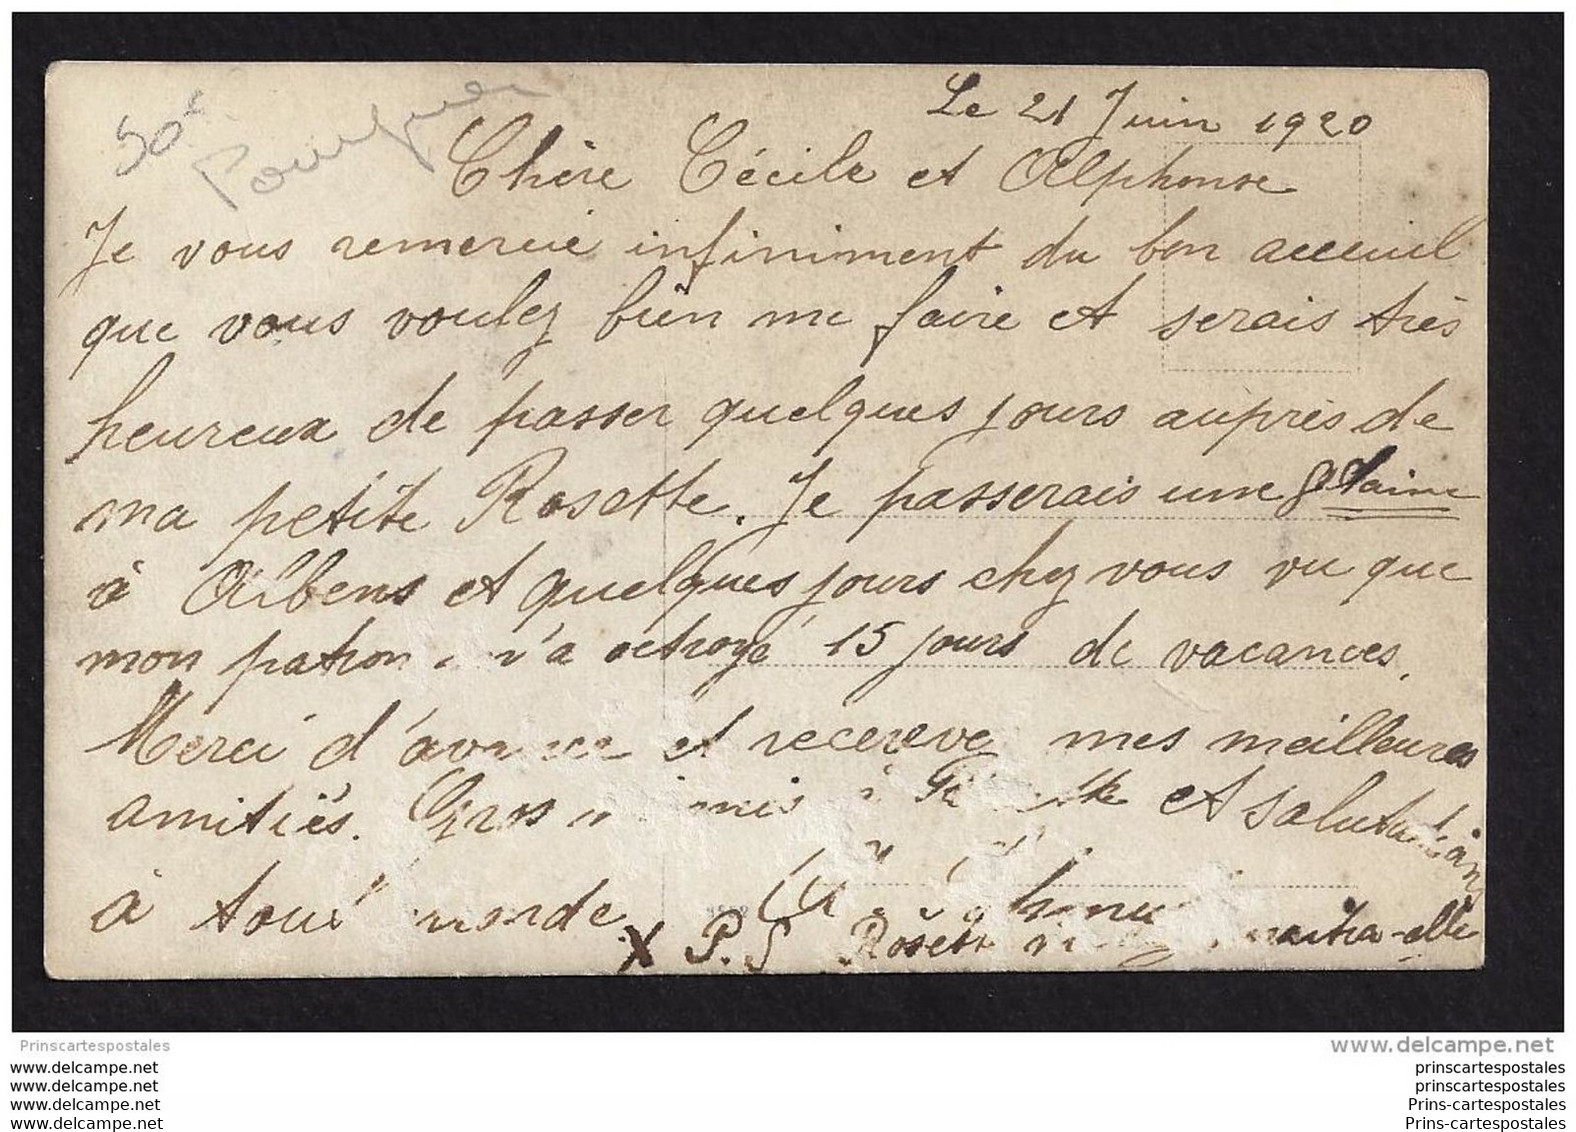 50
Le 21 Juin 1920
Chère Cécile et Alphonse
Je vous remercie infiniment du bon acceuil
que vous voulez bien me faire et serais très
heureux de passer quelques jours auprès de
ma petite Rosette. Je passerais une
à Albens et quelques jours chez vous vu que
mon patron m'a octroyé 15 jours de vacances.
Merci d'avance et recevez mes meilleures
amitiés. Gros et salutations
à tout monde
X P.S Rosette -elle
Prinscartespostales
www.delcampe.net
www.delcampe.net
www.delcampe.net
www.delcampe.net
www.delcampe.net
prinscartespostales
prinscartespostales
Prins-cartespostales
Prins-cartespostales